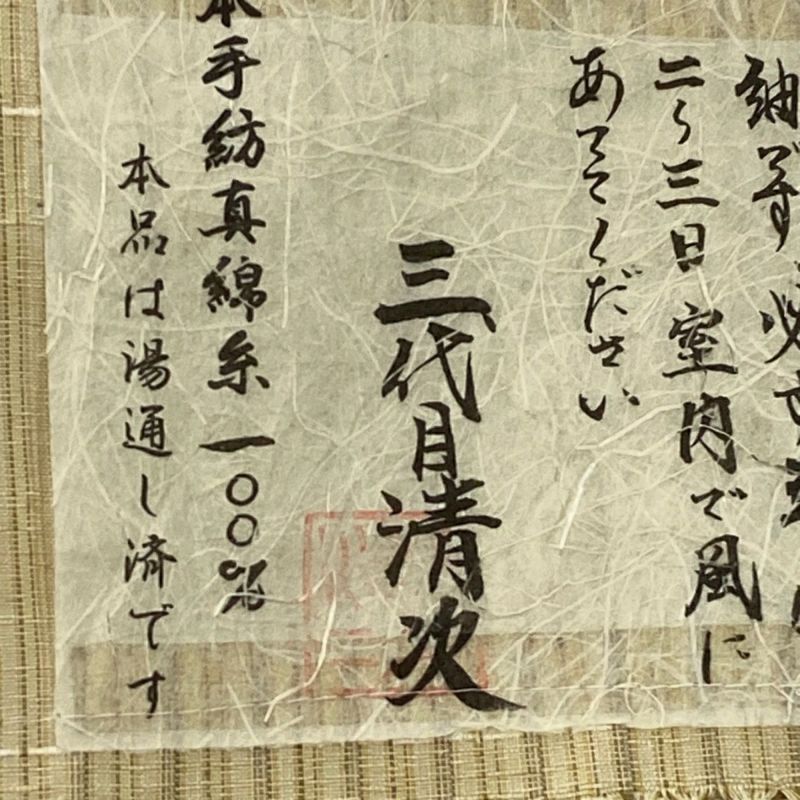 紬です 必ず
二〜三日室内で風に
あててください
三代目清次
本手紡真綿糸一〇〇%
本品は湯通し済です